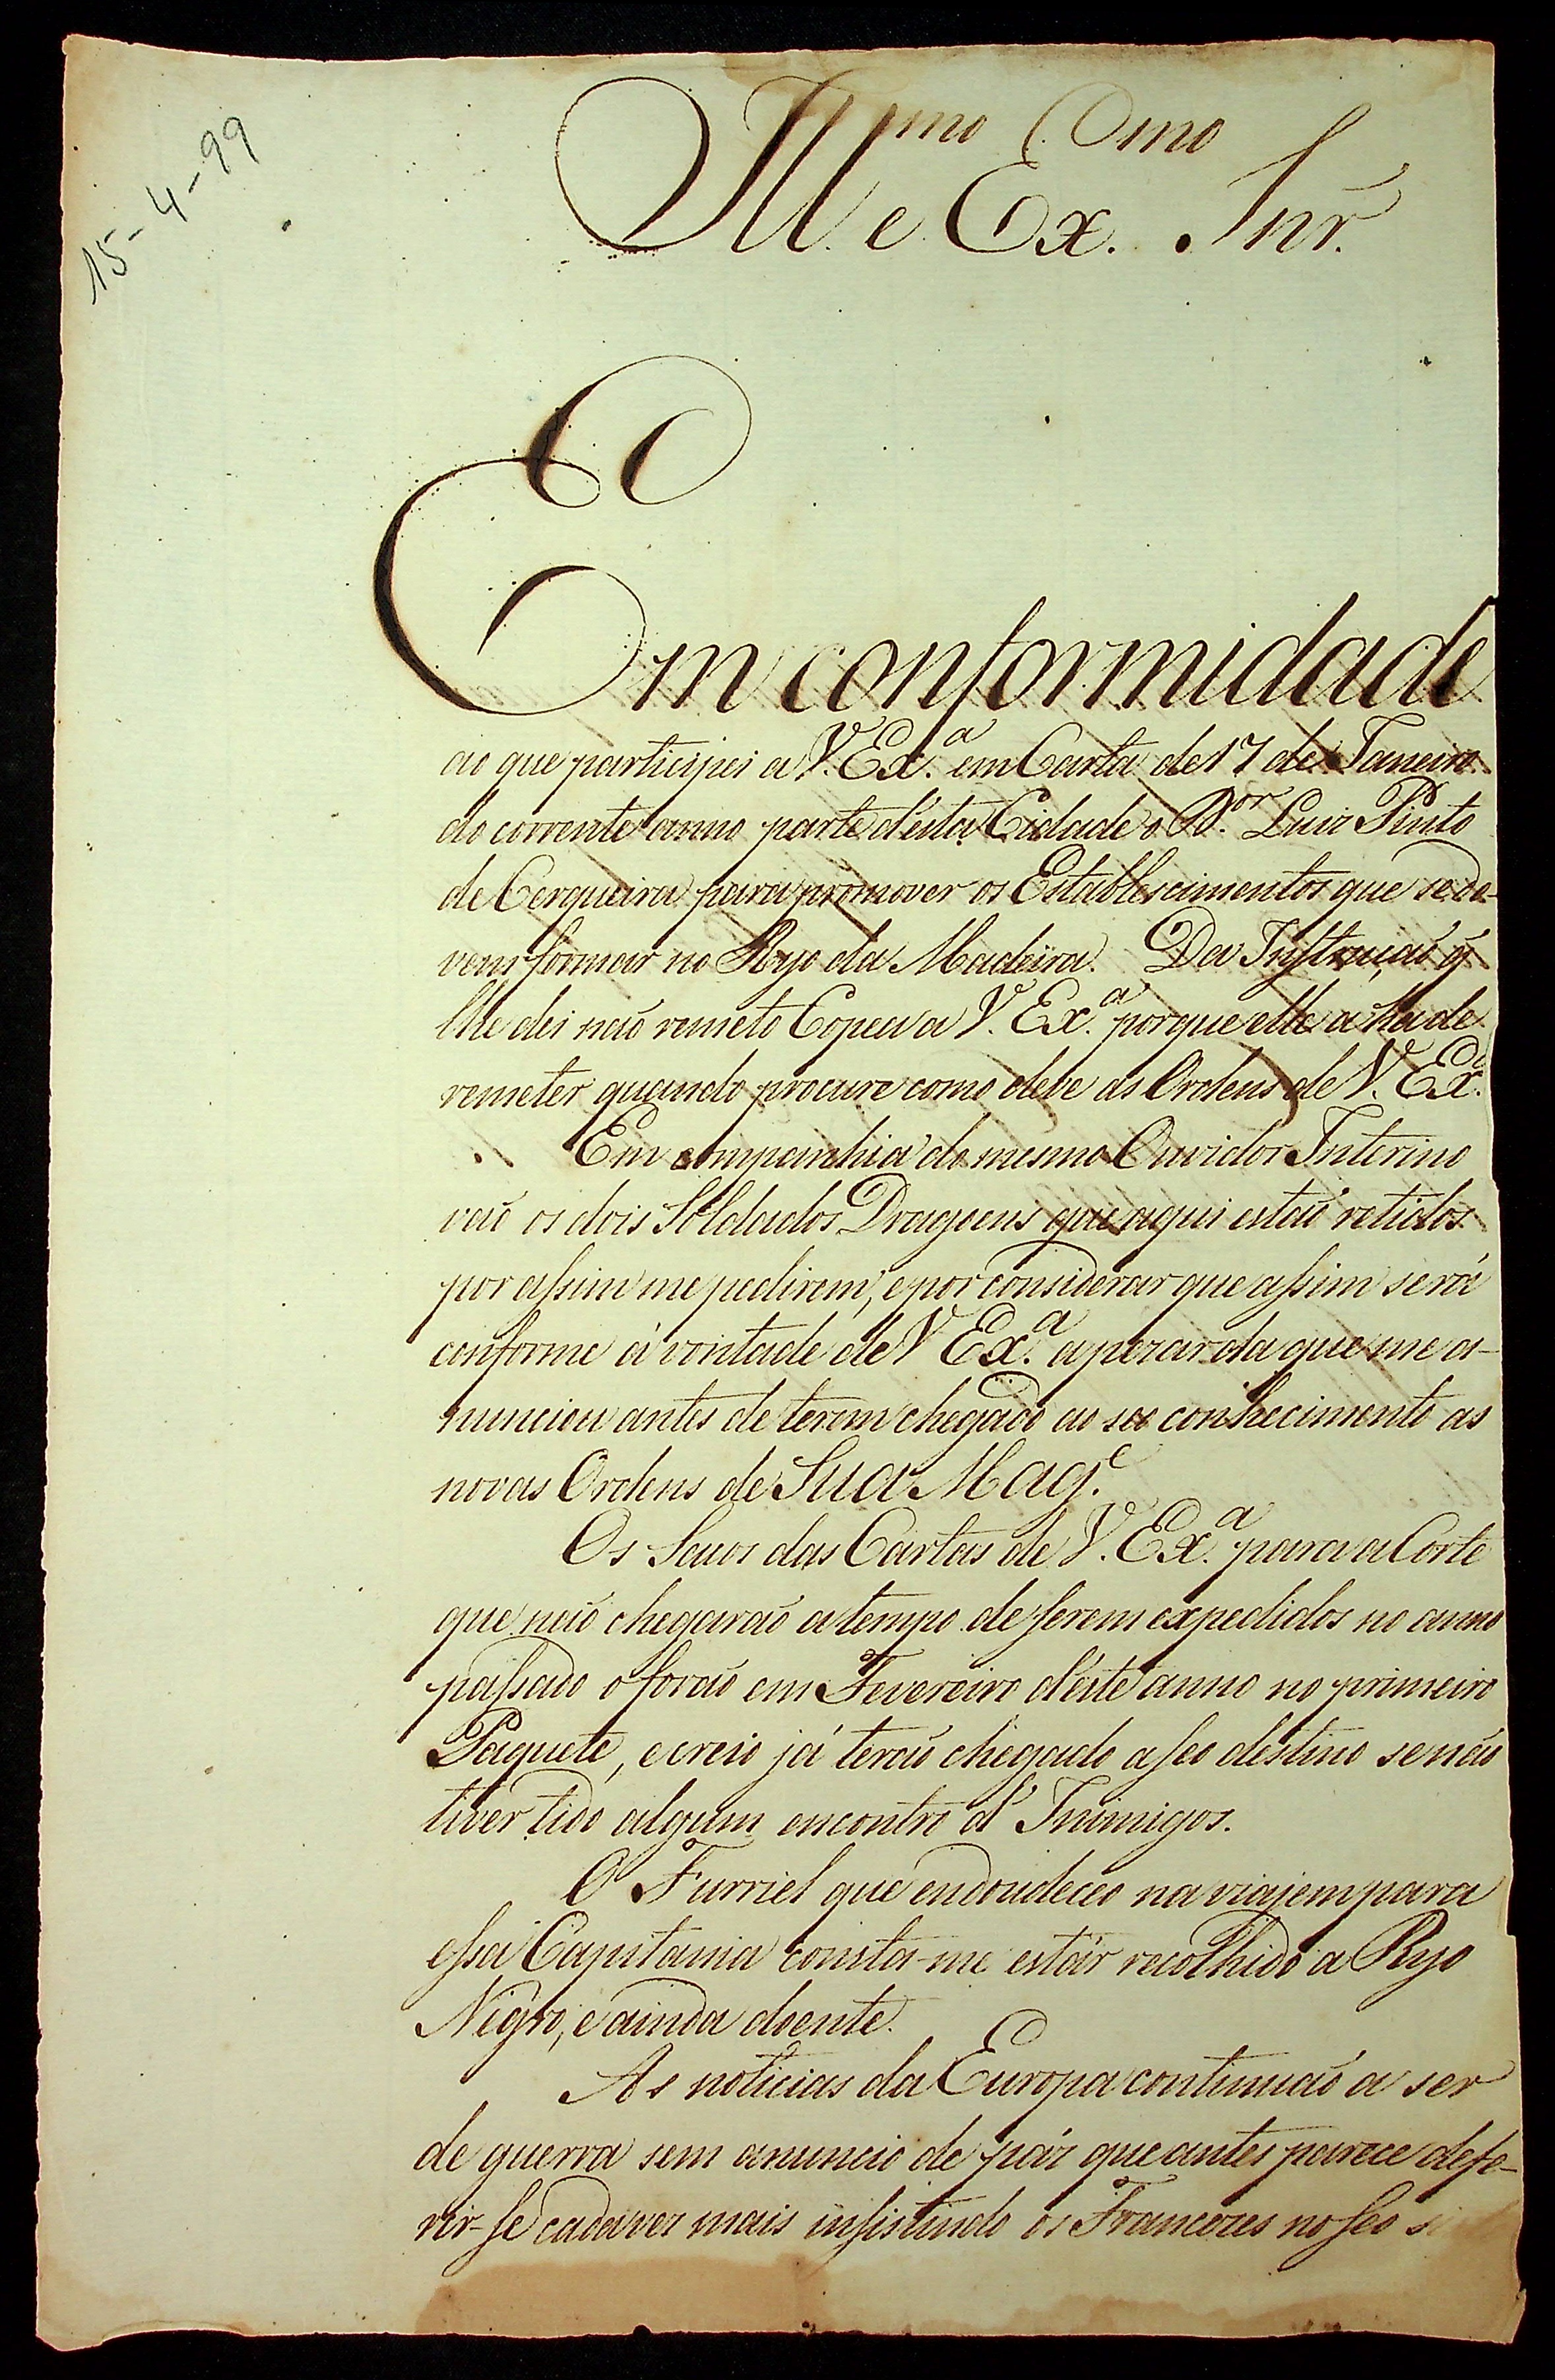 15-4-99
Ill.mo e Ex.mo Snr.
Em conformidade
ao que participei a V. Ex.a em Carta de 17 de Janeiro
do corrente anno parte d'esta Cidade o D.or Luiz Pinto
de Cerqueira para promover os Establescimentos que se de-
vem formar no Ryo da Madeira. Da Instruçaõ q̃
lhe dei naõ remeto Copea a V. Ex.a porque elle a ha de
remeter quando procure como deve as Ordens de V. Ex.a
Em companhia do mesmo Ouvidor Interino
vaõ os dois Soldados Dragoens que aqui estaõ retidos
por assim me pedirem, e por considerar que assim será
conforme á vontade de V Ex.a apezar da que me a-
nunciou antes de terem chegado ao seo conhecimento as
novas Ordens de Sua Mag.e
Os Sacos das Cartas de V. Ex.a para a Corte
que naõ chegaraõ a tempo de serem expedidos no anno
passado o foraõ em Fevereiro d'este anno no primeiro
Paquete, e creio já teraõ chegado a seo destino se naõ
tiver tido algum encontro d'Inimigos.
O Furriel que endoudeceo na viajem para
essa Capitania consta-me estár recolhido a Ryo
Negro, e ainda doente.
As noticias da Europa continuaõ a ser
de guerra sem anuncio de páz que antes parece defe-
rir-se cada vez mais insistindo os Francezes no seo